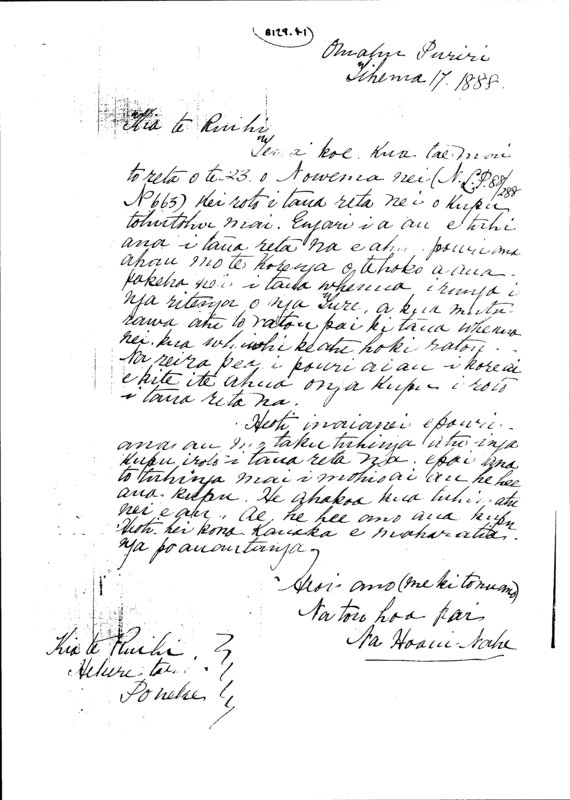 B129.41
Omahu Puriri
Tihema 17. 1888.
Kia te Ruihi
koe. Kua tae mai
to reta o te 23. o Nowema nei (N.L.P. 88/
288
No 665) Kei roto i taua reta nei o kupu
tohutohu mai. Engari i a au e tuhi
ana i taua reta na e ahu pouri ana
ahau mo te korenga o te hoko a aua
pakeha nei i taua whenua i runga i
nga ritenga o nga Ture, a kua mutu
rawa atu to ratou pai ki taua whenua
nei. kua ke atu hoki ratou
Na reira pea i pouri ai au i kore ai
e kite i te ahua o nga kupu i roto
i taua reta na.
Heoti inaianei e pouri
ana au taku tuhinga atu i nga
kupu i roto i taua reta e pai ana
to tuhinga mai i mohio ai au he hee
aua kupu. He ahakoa kua tuhi atu
nei e au, Ae, he hee ano aua kupu
Heoti kei kona Kanaka e
nga
Heoi ano
Na tou hoa pai
Na Hoani Nahe
Kia te Ruihi
Hekere
Poneke